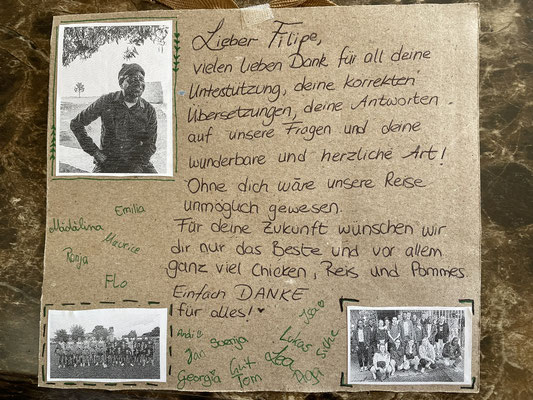 Lieber Filipe,
vielen lieben Dank für all deine
Unterstützung, deine korrekten
Übersetzungen, deine Antworten
auf unsere Fragen und deine
wunderbare und herzliche Art!
Ohne dich wäre unsere Reise
unmöglich gewesen.
Für deine Zukunft wünschen wir
dir nur das Beste und vor allem
ganz viel Chicken, Reis und Pommes
Einfach DANKE
für alles!
Emilia
Mădălina
Maurice
Ronja
Flo
Andi
Svenja
Jan
Georgia
Tom
Lukas
Lea
Isa